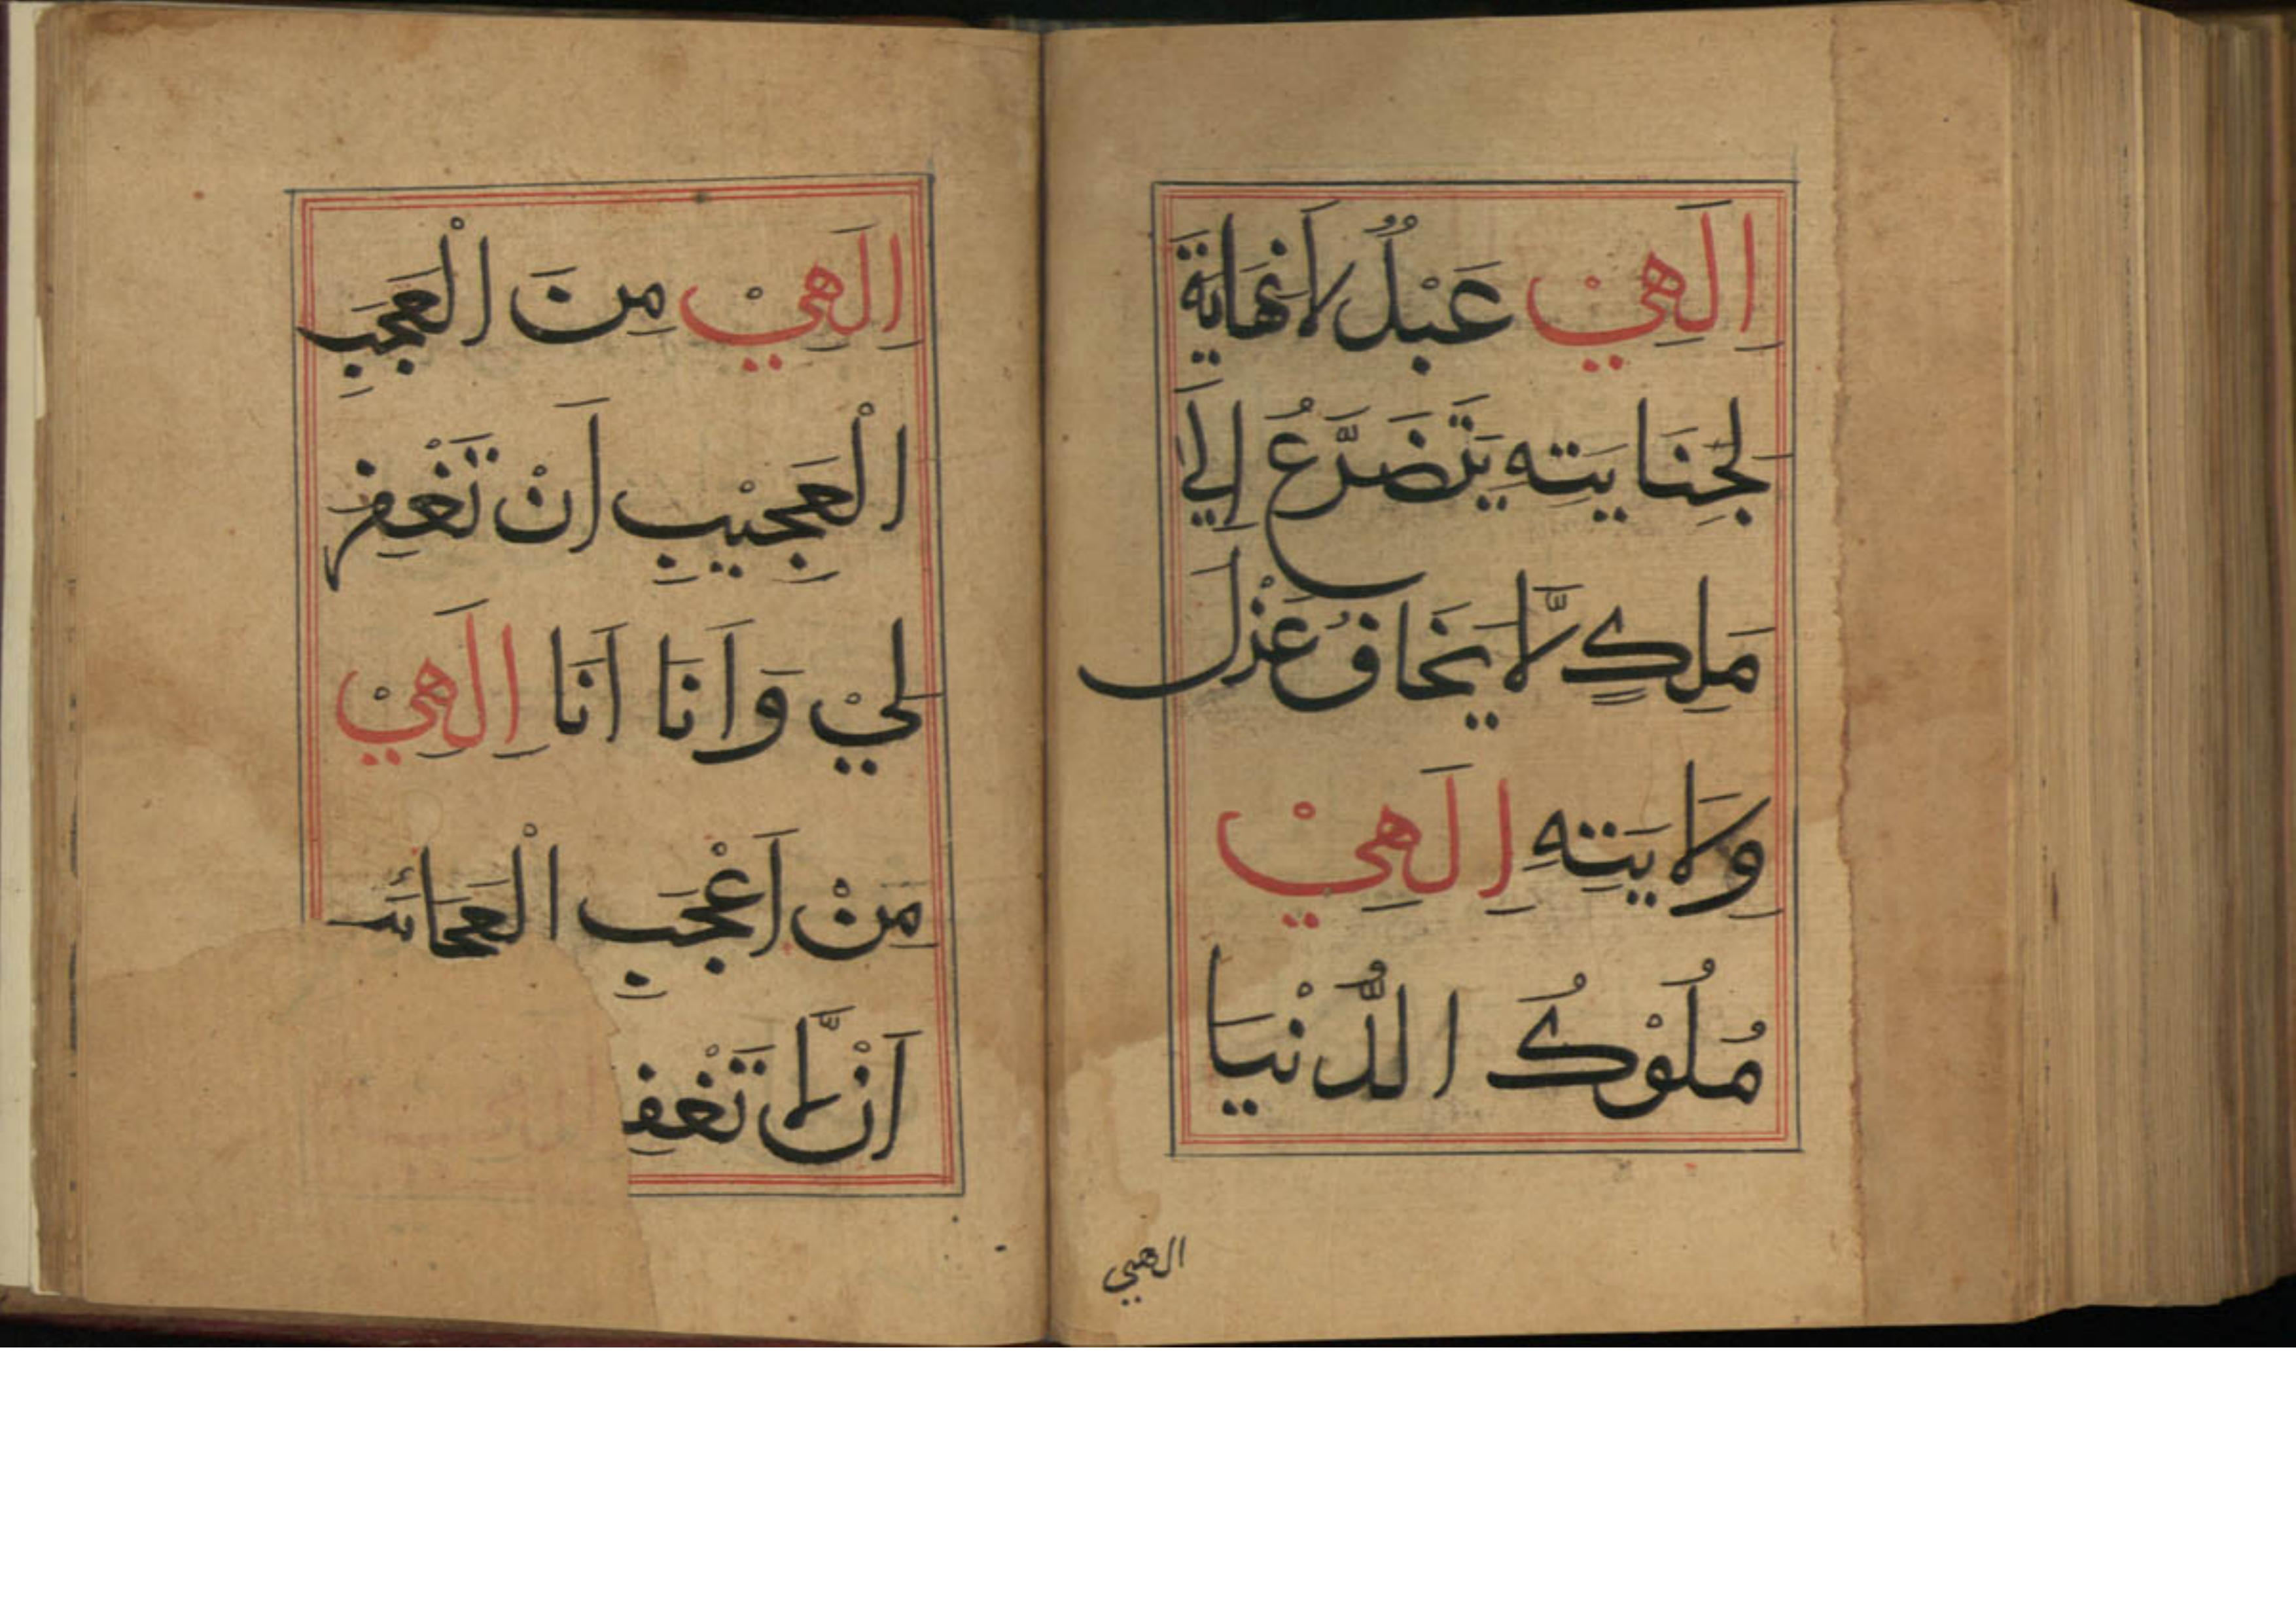 اِلَهِيْ عَبْدٌ لَا نِهَايَةَ
لِجِنَايَتِهِ يَتَضَرَّعُ اِلَى
مَلِكٍ لَّا يَخَافُ عَزْلَ
وِلَايَتِهِ اِلَهِيْ
مُلُوْكُ الدُّنْيَا
الهي
اِلَهِيْ مِنَ الْعَجَبِ
الْعَجِيْبِ اَنْ تَغْفِرَ
لِيْ وَاَنَا اَنَا اِلَهِيْ
مِنْ اَعْجَبِ الْعَجَائِبِ
اَنْ لَّا تَغْفِ